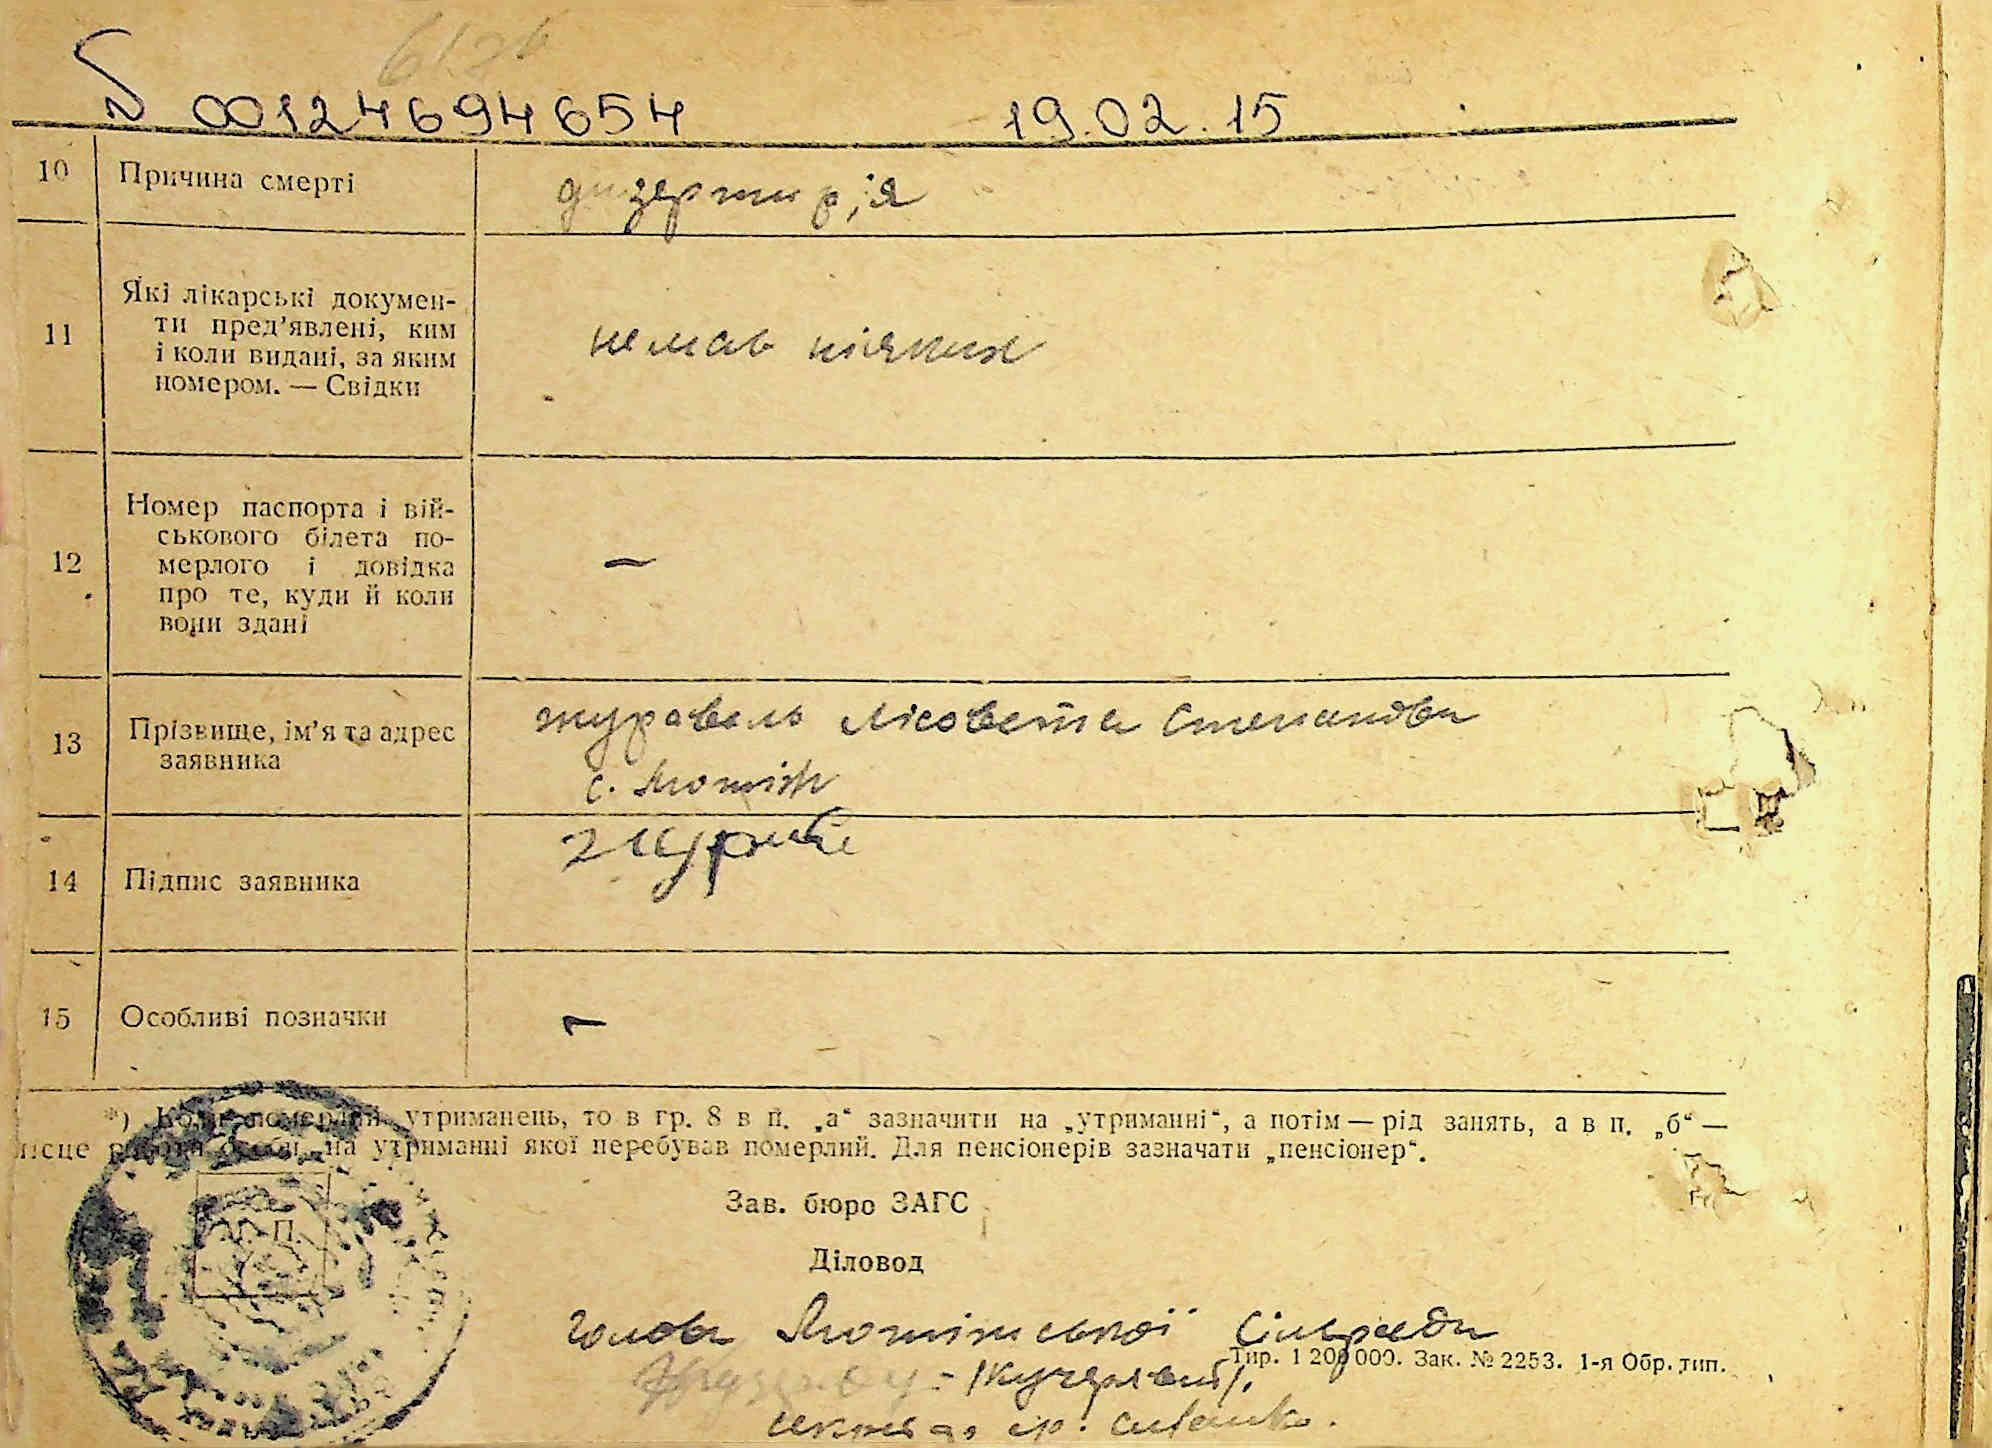 00124694654 19.02.15
10 Причина смерті дизертирія
11 Які лікарські докумен-
ти пред’явлені, ким
і коли видані, за яким
номером. — Свідки
немав ніяких
12 Номер паспорта і вій-
ськового білета по-
мерлого і довідка
про те, куди й коли
вони здані
—
13 Прізвище, ім’я та адрес
заявника
журавель Лісовета Степановна
с.
14 Підпис заявника
15 Особливі позначки —
*) Коли померлий утриманець, то в гр. 8 в п. „а“ зазначити на „утриманні“, а потім — рід занять, а в п. „б“ —
місце роботи особи, на утриманні якої перебував померлий. Для пенсіонерів зазначати „пенсіонер“.
М. П.
Зав. бюро ЗАГС
Діловод
голова сільради
Тир. 1 200 000. Зак. № 2253. 1-я Обр. тип.
/Кучерявий/.